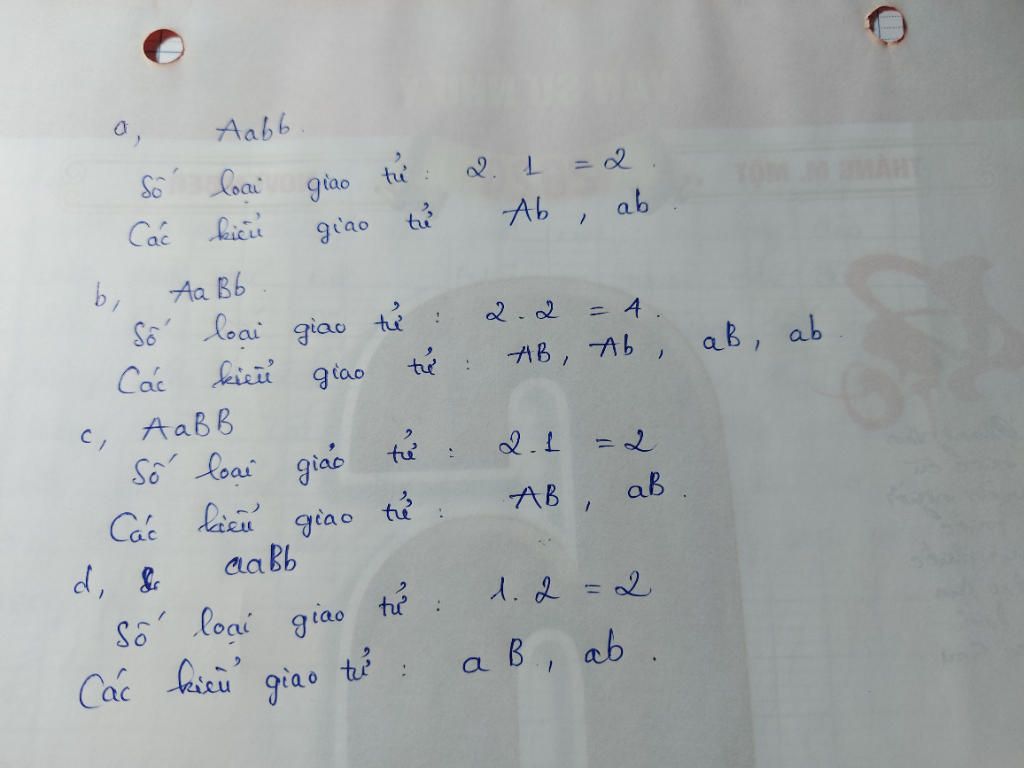 a, Aabb.
Số loại giao tử : 2. 1 = 2.
Các kiểu giao tử Ab, ab.
b, AaBb.
Số loại giao tử : 2. 2 = 4.
Các kiểu giao tử : AB, Ab, aB, ab.
c, AaBB
Số loại giảo tử : 2.1 = 2
Các kiểu giao tử : AB, aB.
d, aaBb
Số loại giao tử : 1. 2 = 2
Các kiểu giao tử : aB, ab.
THÁNG M. MỘT
NOVEMBER